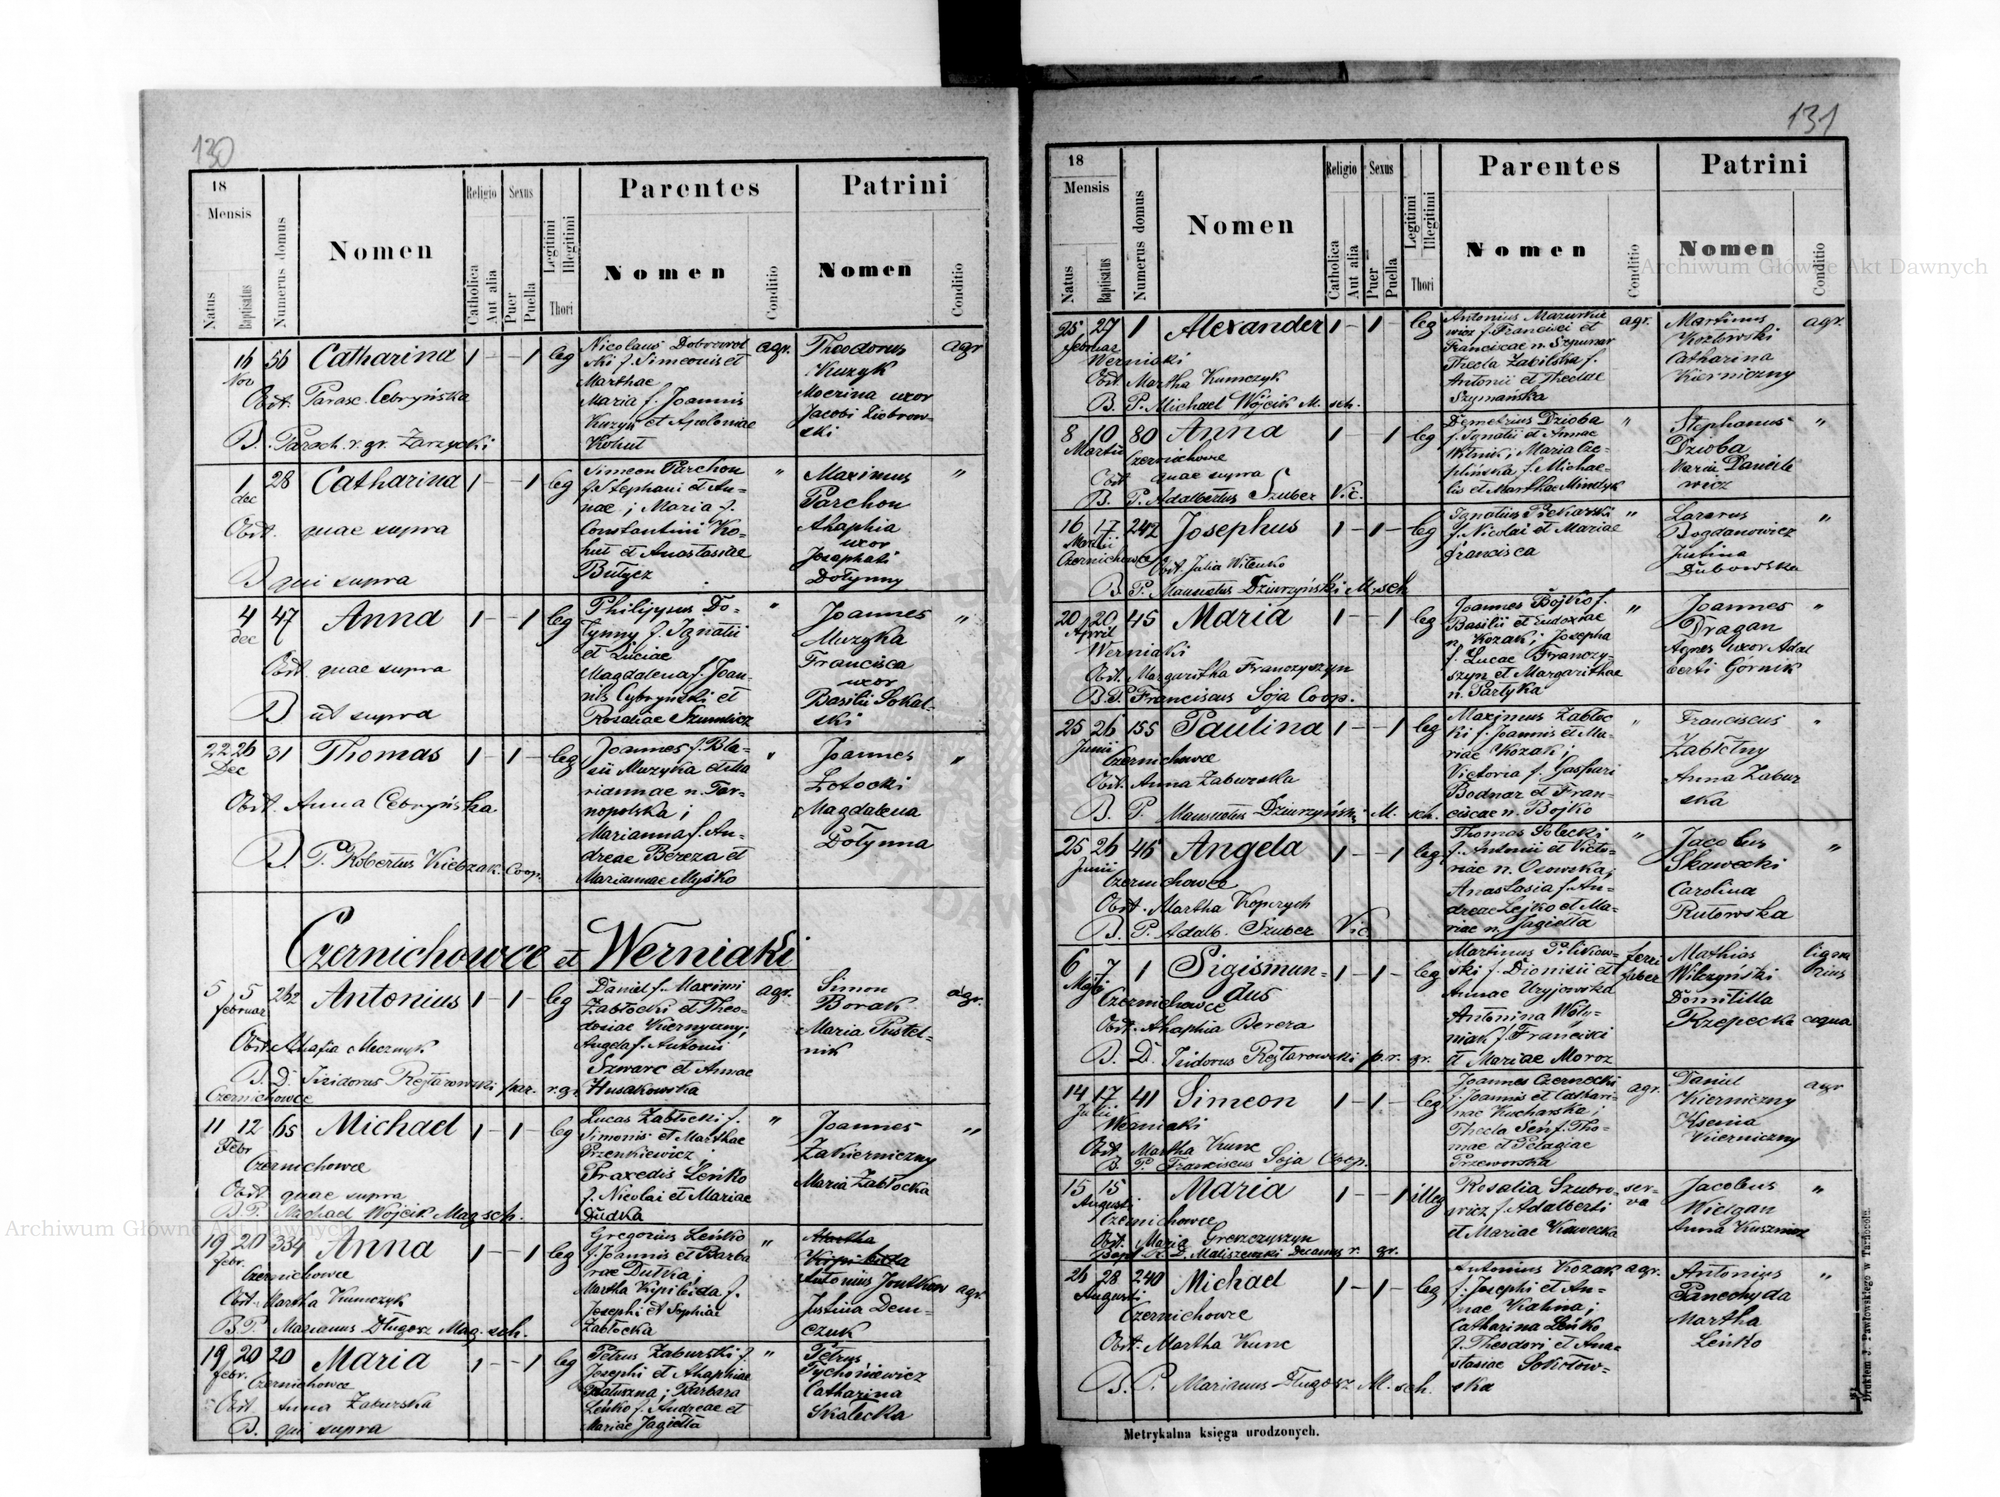 130
18
Mensis
Natus
Baptisatus
Numerus domus
Nomen
Religio
Catholica
Aut alia
Sexus
Puer
Puella
Legitimi
Illegitimi
Thori
Parentes
Nomen
Conditio
Patrini
Nomen
Conditio
16 56 Catharina 1 - - 1 leg
Nov
Obst. Parasc. Cebryńska
B. Paroch. r. gr. Zarzycki
Nicolaus Dobrowol
ski f. Simeonis et
Marthae
Maria f. Joannis
Kuzyk et Apoloniae
Kohut
agr.
Theodorus
Kuzyk
Mocrina uxor
Jacobi Ziobrow-
ski
agr
1 28 Catharina 1 - - 1 leg
dec
Obst. quae supra
B qui supra
Simeon Parchon
f. Stephani et An-
nae; Maria f.
Constantini Ko-
hut et Anastasiae
Bułycz
"
Maximus
Parchon
Ahaphia
uxor
Josaphati
Dołynny
"
4 47 Anna 1 - - 1 leg
dec
Obst. quae supra
B ut supra
Philippus Do-
łynny f. Ignatii
et Luciae
Magdalena f. Joan-
nis Cybryński et
Rosaliae Szumlicz
"
Joannes
Muzyka
Francisca
uxor
Basilii Sokal-
ski
"
22 26 31 Thomas 1 - 1 - leg
Dec
Obst. Anna Cebryńska
B. P. Robertus Kielczak. Coop.
Joannes f. Bla-
sii Muzyka et Ma
riannae n. Tar-
nopolska;
Marianna f. An-
dreae Bereza et
Mariannae Myśko
"
Joannes
Łotocki
Magdalena
Dołynna
"
Czernichowce et Werniaki
5 5 262 Antonius 1 - 1 - leg
februar
Obst. Ahafia Mecznyk
B. D. Isidorus Rejtarowski par. r. gr.
Czernichowce
Daniel f. Maximi
Zabłocki et Theo-
dosiae Kiernyczny;
Angela f. Antonii
Szwarc et Annae
Husakowska
agr.
Simon
Borak
Maria Pustel-
nik
agr.
11 12 65 Michael 1 - 1 - leg
Febr
Czernichowce
Obst quae supra
B. P. Michael Wójcik Mag. sch.
Lucas Zabłocki f.
Simonis et Marthae
Przenkiewicz
Praxedis Leńko
f. Nicolai et Mariae
Dudka
"
Joannes
Zakierniczny
Maria Zabłocka
"
19 20 334 Anna 1 - - 1 leg
febr.
Czernichowce
Obst. Martha Kumczyk
B. P. Marianus Długosz Mag. sch.
Gregorius Leńko
f. Joannis et Barba
rae Dutka;
Martha Kipibida f.
Josephi et Sophiae
Zabłocka
"
Martha
Kipibida
Antonius Jontkow
Justina Dem-
czuk
agr.
19 20 20 Maria 1 - - 1 leg
febr.
Czernichowce
Obst. Anna Zaburska
B. qui supra
Petrus Zaburski f.
Josephi et Ahaphiae
Barbara
Leńko f. Andreae et
Mariae Jagiełła
"
Petrus
Tychoniewicz
Catharina
Skalecka
131
18
Mensis
Natus
Baptisatus
Numerus domus
Nomen
Religio
Catholica
Aut alia
Sexus
Puer
Puella
Legitimi
Illegitimi
Thori
Parentes
Nomen
Conditio
Patrini
Nomen
Conditio
25 27 1 Alexander 1 - 1 - leg
februar
Werniaki
Obst. Martha Kumczyk
B. P. Michael Wójcik M. sch.
Antonius Mazurkie
wicz f. Francisci et
Franciscae n. Szpunar
Thecla Zabilska f.
Antonii et Theclae
Szymańska
agr.
Martinus
Kozłowski
Catharina
Kierniczny
agr.
8 10 80 Anna 1 - - 1 leg
Martii
Czernichowce
Obst quae supra
B. P. Adalbertus Szuber Vic.
Demetrius Dzioba
f. Ignatii et Annae
Witnik; Maria Cze-
plińska f. Michae-
lis et Marthae Mindzyk
"
Stephanus
Dzioba
Maria Daniele
wicz
"
16 17 242 Josephus 1 - 1 - leg
Martii
Czernichowce Obst. Julia Witenko
B. P. Mansuetus Dziurzyński M. sch
Ignatius Piekarski
f. Nicolai et Mariae
francisca
"
Lazarus
Bogdanowicz
Justina
Dubowska
"
20 20 45 Maria 1 - - 1 leg
April
Werniaki
Obst. Margaritha Franczyszyn
B. P. Franciscus Soja Coop.
Joannes Bojko f.
Basilii et Eudoxiae
n. Kozak; Josepha
f. Lucae Franczy-
szyn et Margarithae
n. Partyka
"
Joannes
Dragan
Agnes uxor Adal
berti Górnik
"
25 26 155 Paulina 1 - - 1 leg
Junii
Czernichowce
Obst. Anna Zaburska
B. P. Mansuetus Dziurzyński M. sch.
Maximus Zabłoc
ki f. Joannis et Ma-
riae Kozak;
Victoria f. Gaspari
Bodnar et Fran-
ciscae n. Bojko
"
Franciscus
Zabłotny
Anna Zabur
ska
"
25 26 46 Angela 1 - - 1 leg
Junii
Czernichowce
Obst. Martha Kopczych
B. P. Adalb. Szuber Vic
Thomas Solecki
f. Antonii et Victo-
riae n. Osowska;
Anastasia f. An-
dreae Lejko et Ma-
riae n. Jagiełła
"
Jacobus
Sławecki
Carolina
Rutowska
"
6 7 1 Sigismun- 1 - 1 - leg
Maji dus
Czernichowce
Obst. Ahaphia Bereza
B. D. Isidorus Rejtarowski p. r. gr.
Martinus Pilikow-
ski f. Dionisii et
Annae Uryjowska
Antonina Woły-
niak f. Francisci
et Mariae Moroz
ferri
faber
Mathias
Wilczyński
Domitilla
Rzepecka
ligna
rius
coqua
14 17 41 Simeon 1 - 1 - leg
Julii
Werniaki
Obst. Martha Kunc
B. P. Franciscus Soja Coop.
Joannes Czernecki
f. Joannis et Cathari-
nae Kucharska;
Thecla Seń f. Tho-
mae et Pelagiae
Przeworska
agr.
Daniel
Kierniczny
Ksenia
Kierniczny
agr
15 15 Maria 1 - - 1 illeg
Augusti
Czernichowce
Obst. Maria Greszczyszyn
Bapt. R. D. Maliszewski Decanus r. gr.
Rosalia Szubro-
wicz f. Adalberti
et Mariae Kawecka
ser-
va
Jacobus
Kielgan
Anna Kusznierz
"
26 28 240 Michael 1 - 1 - leg
Augusti
Czernichowce
Obst. Martha Kunc
B. P. Marianus Długosz M. sch.
Antonius Kozak
f. Josephi et An-
nae Kalina;
Catharina Leńko
f. Theodori et Ana-
stasiae Sokołow-
ska
agr.
Antonius
Panechyda
Martha
Leńko
"
Metrykalna księga urodzonych.
Drukiem J. Pawłowskiego w Tarnopolu.
Archiwum Główne Akt Dawnych
Archiwum Główne Akt Dawnych